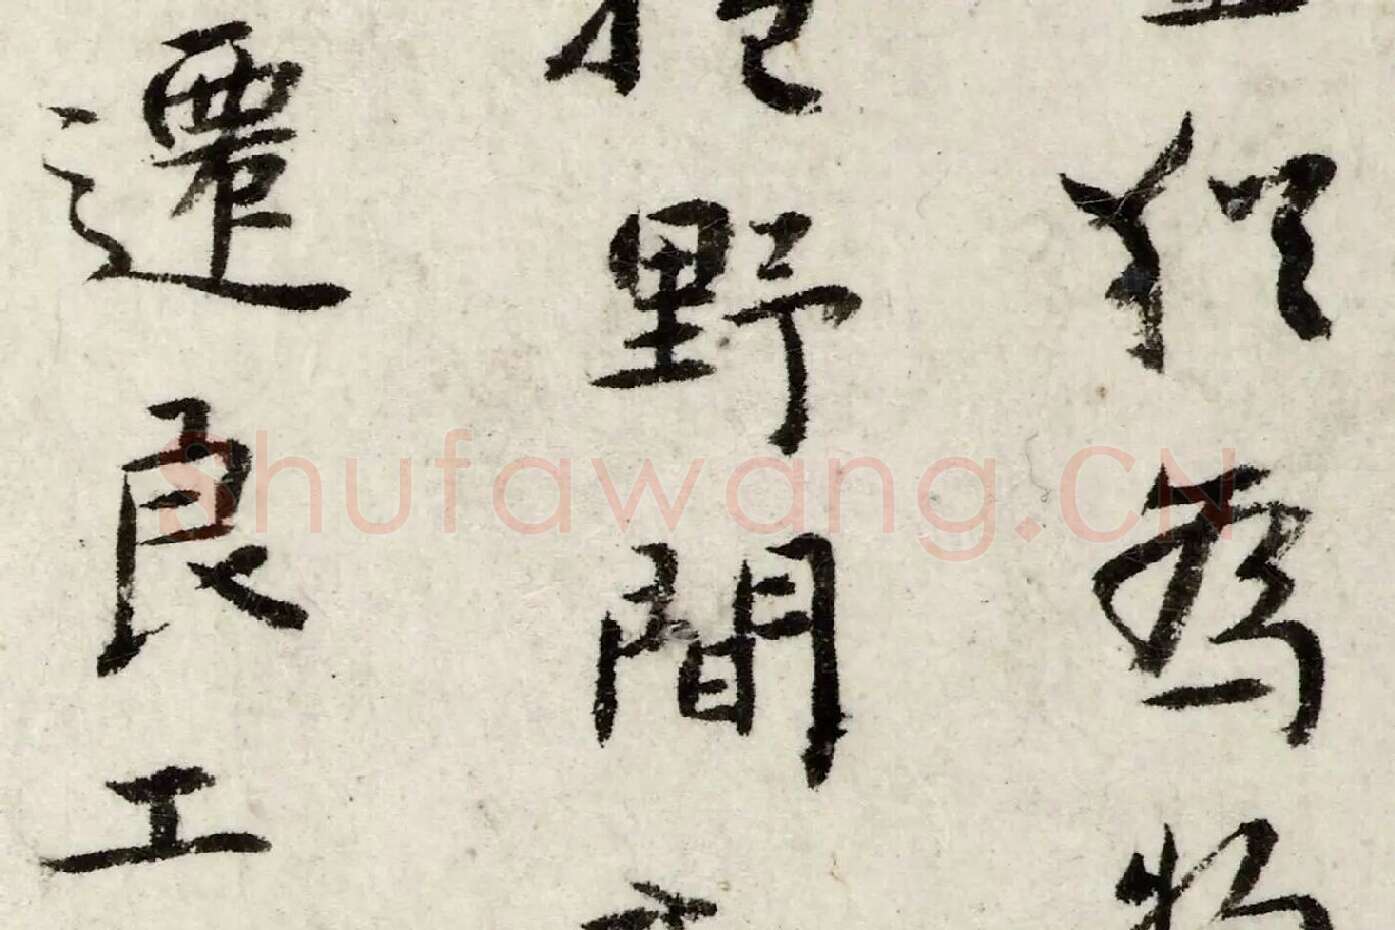 為物
野間
遷良工
Shufawang.CN